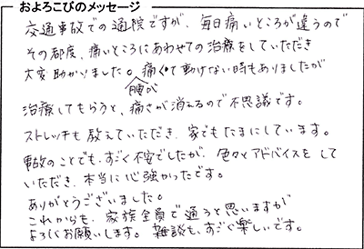 おようこびのメッセージ
交通事故での通院ですが、毎日痛いところが違うので
その都度、痛いところにあわせての治療をしていただき
大変助かりました。腰が痛くて動けない時もありましたが
治療してもらうと、痛さが消えるので不思議です。
ストレッチも教えていただき、家でもたまにしています。
事故のことでも、すごく不安でしたが、色々とアドバイスをして
いただき、本当に心強かったです。
ありがとうございました。
これからも、家族全員で通うと思いますが
よろしくお願いします。雑談も、すごく楽しいです。